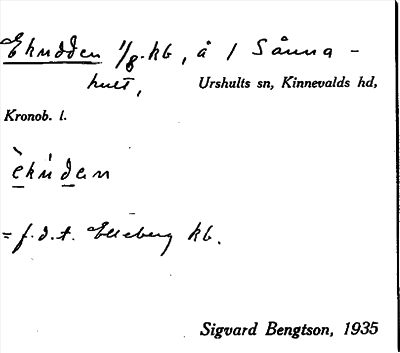 Ekudden 1/8 kb, å 1 Sånna-
hult, Urshults sn, Kinnevalds hd,
Kronob. l.
èkúdan
= f.d.t. Elleberg kb.
Sigvard Bengtson, 1935